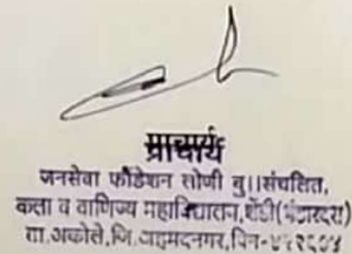 प्राचार्य
जनसेवा फौंडेशन लोणी बु||संचलित,
कला व वाणिज्य महाविद्यालय, शेंडी(भंडारदरा)
ता.अकोले,जि.अहमदनगर,पिन-